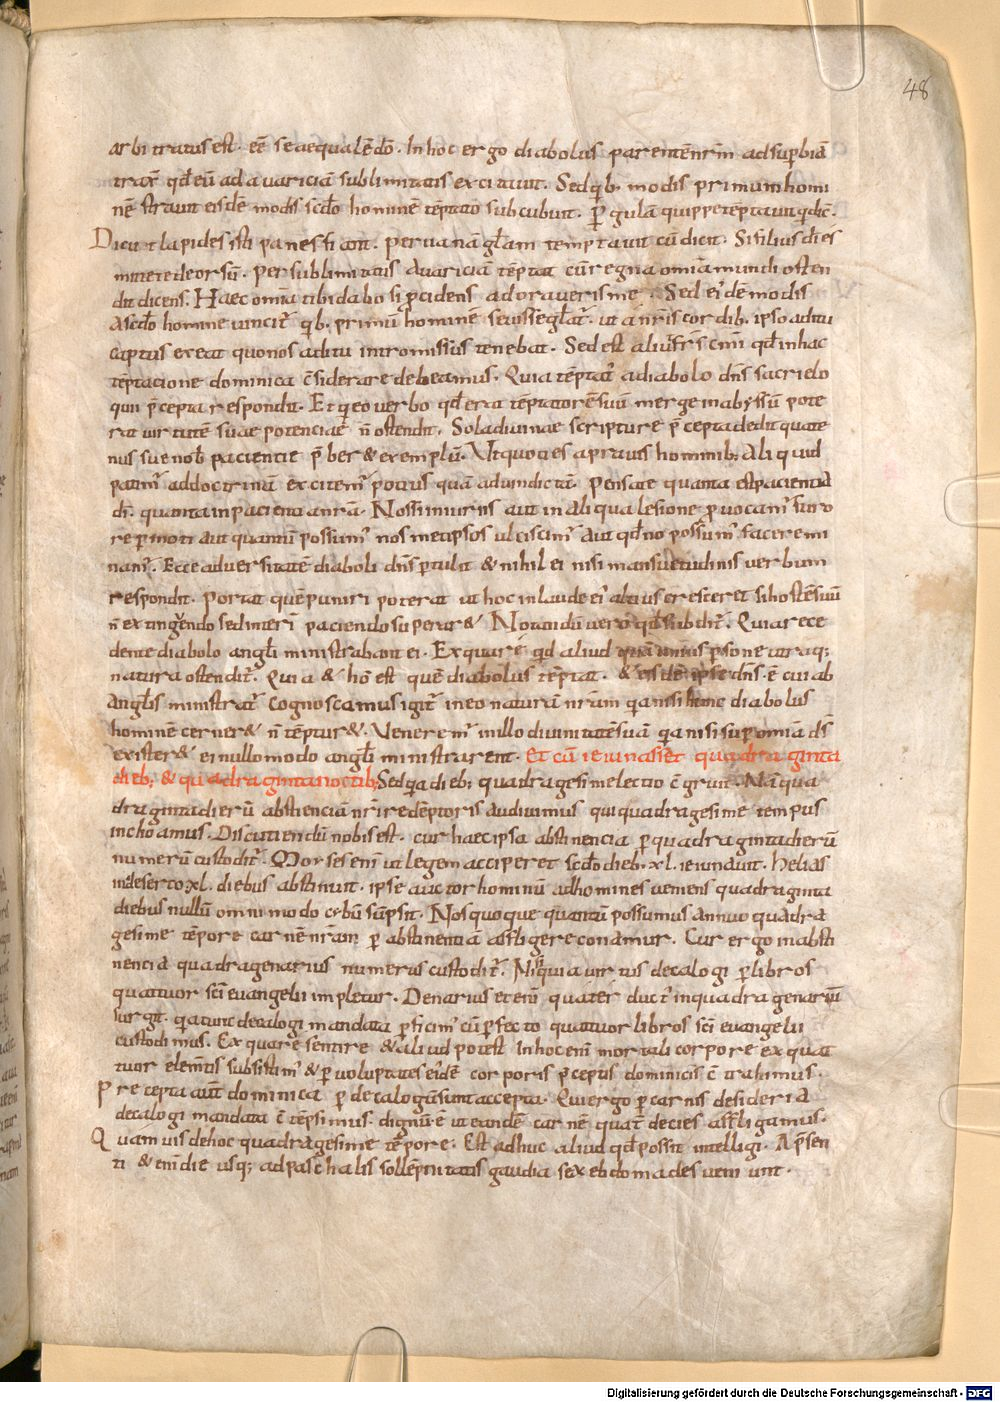 48
arbitratus est. eē se aequalē dō. In hoc ergo diabolus parentē nr̄m ad supbiā
traxit qd̄ eū ad avariciā sublimitatis excitavit. Sed qb. modis primum homi
nē stravit eisdē modis scdō hominē tēptato subcubuit. p gulā quippe tēptavit qd̄ dic̄.
Dic ut lapides isti panes fiant. per vanā gl̄am temptavit cū dicit. Si filius dī es
mittere deorsū. per sublimitatis avariciā tēptat cū regna omīa mundi osten
dit dicens. Haec omīa tibi dabo si pcidens adoraveris me. Sed eisdē modis
a scdō homine vincit qb. primū hominē se vicisse gl̄at. ut a nr̄is cordib. ipso aditu
captus exeat quo nos aditu intromissus tenebat. Sed est aliud fr̄s cmī qd̄ in hac
tēptacione dominica c̄siderare debeamus. Quia tēptat a diabolo dn̄s sacri elo
quii pcepta respondit. Et q eo verbo qd̄ erat tēptatorē suū mergere in abyssū pote
rat virtutē suae potenciae n̄ ostendit. Sola divinae scripture pcepta dedit quate
nus sue nob paciencie pber& exemplū. Ut quoties a pravis hominib; aliquid
patim̄ ad doctrinā excitem̄ potius quā ad vindictā. Pensate quanta est paciencia
dī. quanta inpacientia nr̄a. Nos si iniuriis aut in aliqua lesione pvocam̄ furo
re pmoti aut quantū possum̄ nosmetipsos ulciscim̄ aut qd̄ no possum̄ facere mi
nam̄. Ecce adversitatē diaboli dn̄s ptulit & nihil ei nisi mansuetudinis verbum
respondit. Portat quē puniri poterat ut hoc in laude ei altius cresceret si hostē suū
n̄ extinguendo sed interi paciendo superar&. Notandū vero qd̄ subdit. Quia rece
dente diabolo angl̄i ministrabant ei. Ex qua re qd aliud quā unius psone utraq;
natura ostendit. Quia & hō est quē diabolus tēptat. & eisdē ipse dn̄s. ē cui ab
angl̄is ministrat. Cognoscamus igit in eo naturā nr̄am qa nisi hunc diabolus
hominē cerner& n̄ tēptar&. Veneremur in illo divinitatē suā qa nisi sup omīa ds̄
exister& ei nullo modo angl̄i ministrarent. Et cū ieiunasset quadraginta
dieb; & quadraginta noctib; Sed qa dieb; quadragesime lectio c̄gruit. Nā qua
draginta dierū abstinenciā nr̄i redēptoris audivimus qui quadragesime tempus
inchoamus. Discutiendū nobis est. cur haec ipsa abstinencia p quadraginta dierū
numerū custodit. Moyses enī ut legem acciperet scdō dieb. xl. ieiunavit. helias
in deserto xl. diebus abstinuit. ipse auctor hominū ad homines veniens quadraginta
diebus nullū omnimodo cybū sūpsit. Nos quoque quantū possumus annuo quadra
gesime tēpore carnē nr̄am p abstinentiā affligere conamur. Cur ergo in absti
nencia quadragenarius numerus custodit. Nisi quia virtus decalogi p libros
quattuor sc̄i evangelii impletur. Denarius etenī quater duct in quadragenarium
surgit. qa tunc decalogi mandata pficim̄ cū pfecto quattuor libros sc̄i evangelii
custodimus. Ex qua re sentire & aliud potest. In hoc enī mortali corpore ex quat
tuor elemtis subsistim̄ & p voluptates eidē corporis pceptis dominicis c̄trahimus.
Precepta aut dominica p decalogū sunt accepta. Qui ergo p carnis desideria
decalogi mandata c̄tēpsimus. dignū ē ut eandē carnē quat decies affligamus.
Quamvis de hoc quadragesime tēpore. Est adhuc aliud qd̄ possit intelligi. A psen
ti & enī die usq; ad paschalis sollēpnitatis gaudia sex ebdomades veniunt.
Digitalisierung gefördert durch die Deutsche Forschungsgemeinschaft - DFG